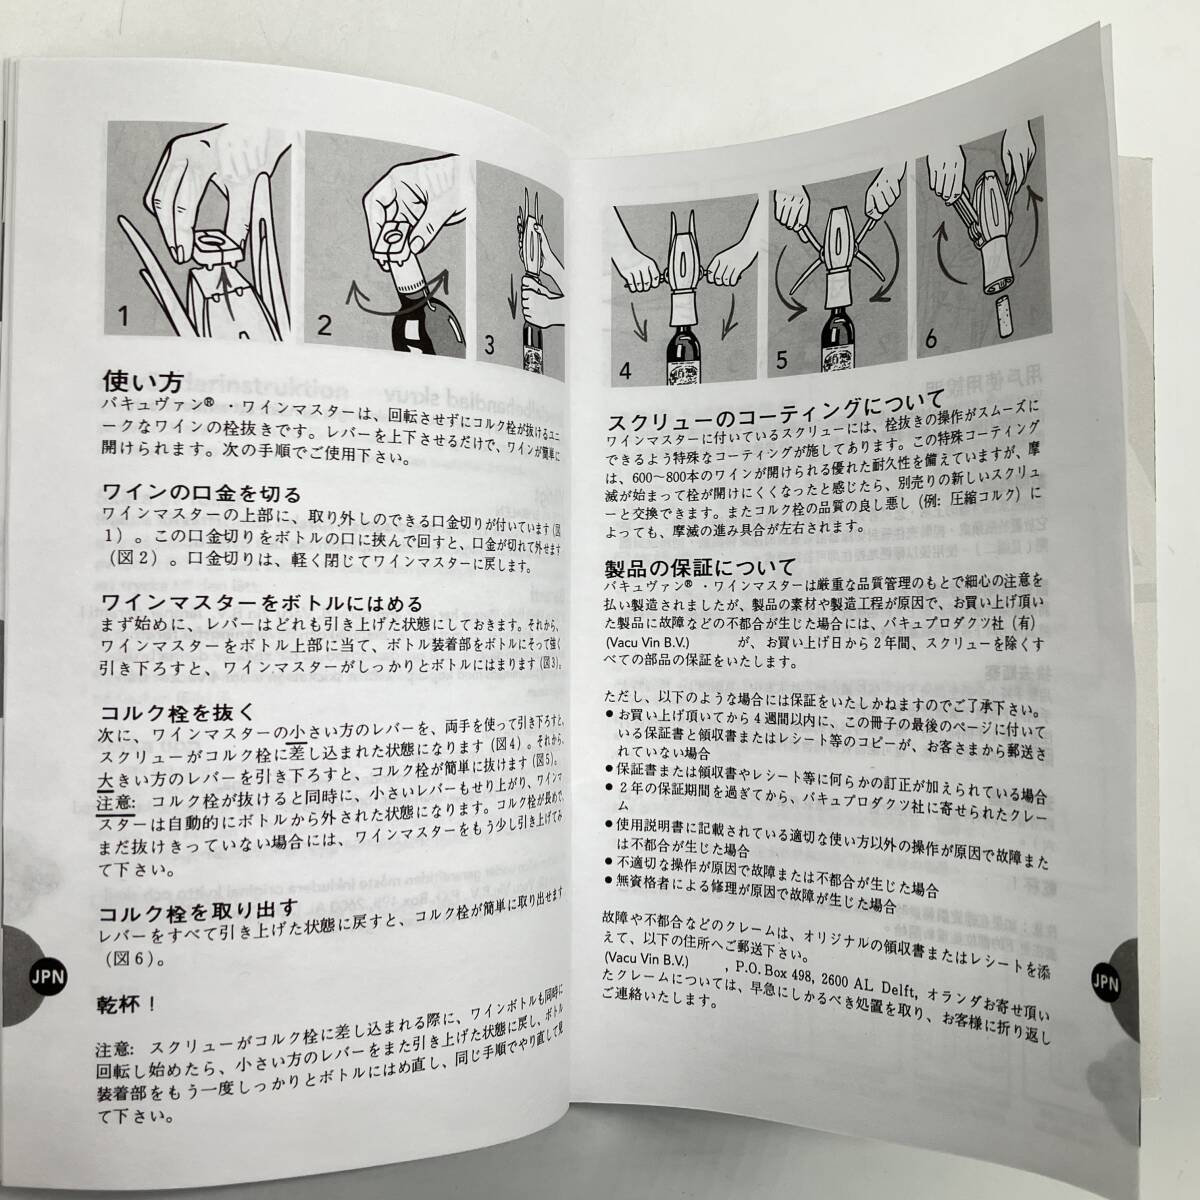 1
2
3
使い方
バキュヴァン®・ワインマスターは、回転させずにコルク栓が抜けるユニ
ークなワインの栓抜きです。レバーを上下させるだけで、ワインが簡単に
開けられます。次の手順でご使用下さい。
ワインの口金を切る
ワインマスターの上部に、取り外しのできる口金切りが付いています(図
1)。この口金切りをボトルの口に挟んで回すと、口金が切れて外せます
(図2)。口金切りは、軽く閉じてワインマスターに戻します。
ワインマスターをボトルにはめる
まず始めに、レバーはどれも引き上げた状態にしておきます。それから、
ワインマスターをボトル上部に当て、ボトル装着部をボトルにそって強く
引き下ろすと、ワインマスターがしっかりとボトルにはまります(図3)。
コルク栓を抜く
次に、ワインマスターの小さい方のレバーを、両手を使って引き下ろすと、
スクリューがコルク栓に差し込まれた状態になります(図4)。それから、
大きい方のレバーを引き下ろすと、コルク栓が簡単に抜けます(図5)。
注意: コルク栓が抜けると同時に、小さいレバーもせり上がり、ワインマ
スターは自動的にボトルから外された状態になります。コルク栓が長めで、
まだ抜けきっていない場合には、ワインマスターをもう少し引き上げてみ
て下さい。
コルク栓を取り出す
レバーをすべて引き上げた状態に戻すと、コルク栓が簡単に取り出せます
(図6)。
乾杯!
注意: スクリューがコルク栓に差し込まれる際に、ワインボトルも同時に
回転し始めたら、小さい方のレバーをまた引き上げた状態に戻し、ボトル
装着部をもう一度しっかりとボトルにはめ直し、同じ手順でやり直して見
て下さい。
JPN
4
5
6
スクリューのコーティングについて
ワインマスターに付いているスクリューには、栓抜きの操作がスムーズに
できるよう特殊なコーティングが施してあります。この特殊コーティング
は、600～800本のワインが開けられる優れた耐久性を備えていますが、摩
滅が始まって栓が開けにくくなったと感じたら、別売りの新しいスクリュ
ーと交換できます。またコルク栓の品質の良し悪し(例: 圧縮コルク)に
よっても、摩滅の進み具合が左右されます。
製品の保証について
バキュヴァン®・ワインマスターは厳重な品質管理のもとで細心の注意を
払い製造されましたが、製品の素材や製造工程が原因で、お買い上げ頂い
た製品に故障などの不都合が生じた場合には、バキュプロダクツ社(有)
(Vacu Vin B.V.) が、お買い上げ日から2年間、スクリューを除くす
べての部品の保証をいたします。
ただし、以下のような場合には保証をいたしかねますのでご了承下さい。
●お買い上げ頂いてから4週間以内に、この冊子の最後のページに付いて
いる保証書と領収書またはレシート等のコピーが、お客さまから郵送さ
れていない場合
●保証書または領収書やレシート等に何らかの訂正が加えられている場合
●2年の保証期間を過ぎてから、バキュプロダクツ社に寄せられたクレー
ム
●使用説明書に記載されている適切な使い方以外の操作が原因で故障また
は不都合が生じた場合
●不適切な操作が原因で故障または不都合が生じた場合
●無資格者による修理が原因で故障が生じた場合
故障や不都合などのクレームは、オリジナルの領収書またはレシートを添
えて、以下の住所へご郵送下さい。
(Vacu Vin B.V.) , P.O. Box 498, 2600 AL Delft, オランダお寄せ頂い
たクレームについては、早急にしかるべき処置を取り、お客様に折り返し
ご連絡いたします。
JPN